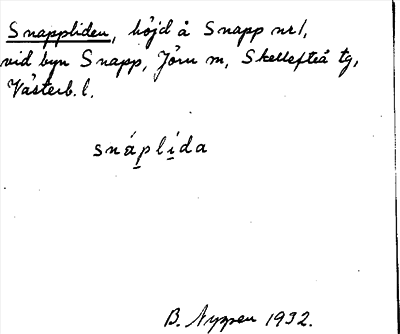 Snappliden, höjd å Snapp nr 1,
vid byn Snapp, Jörn m, Skellefteå tg,
Västerb. l.
snáplída
B. Nyman 1932.